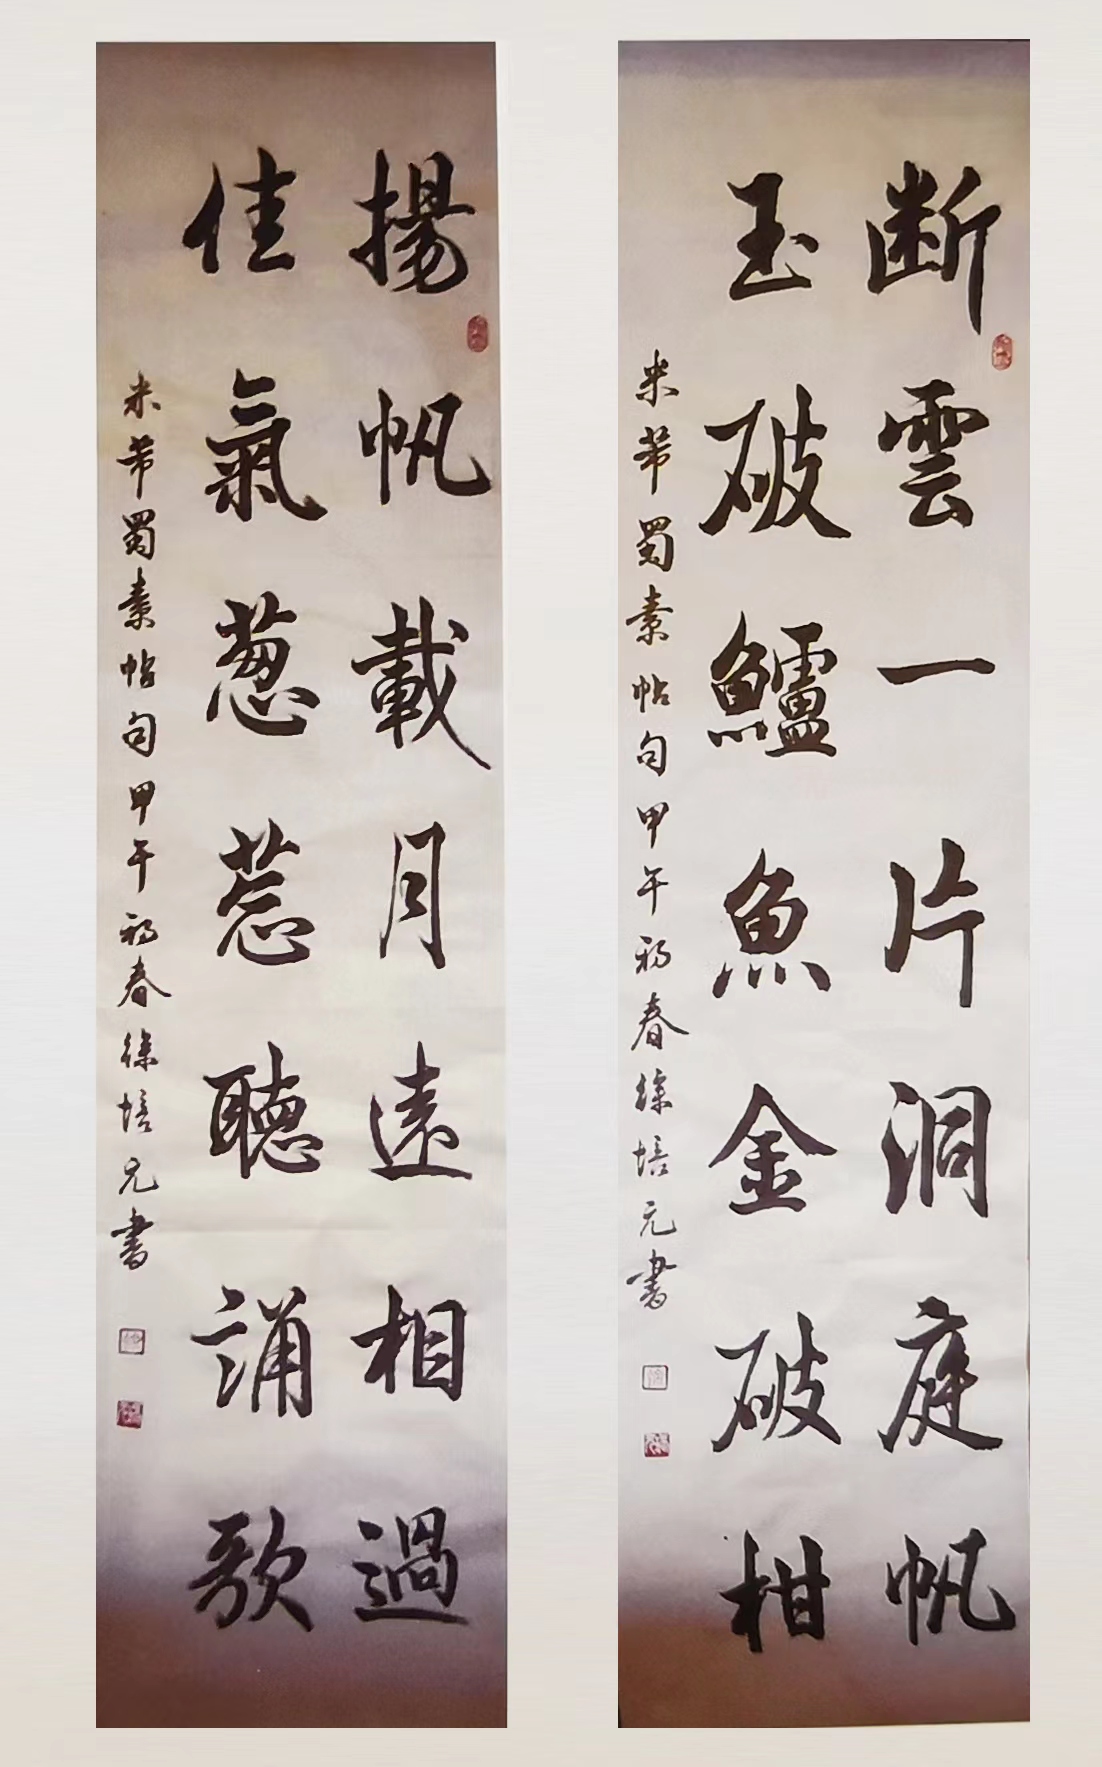 断雲一片洞庭帆
玉破鱸魚金破柑
米芾蜀素帖句甲午初春徐培元書
揚帆載月遠相過
佳氣葱葱聽誦歌
米芾蜀素帖句甲午初春徐培元書